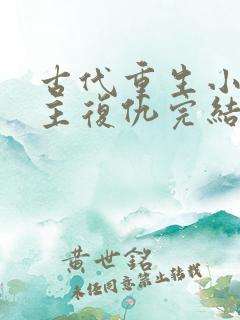 古代重生小
主復仇完結
黃世銘
未經同意禁止轉載